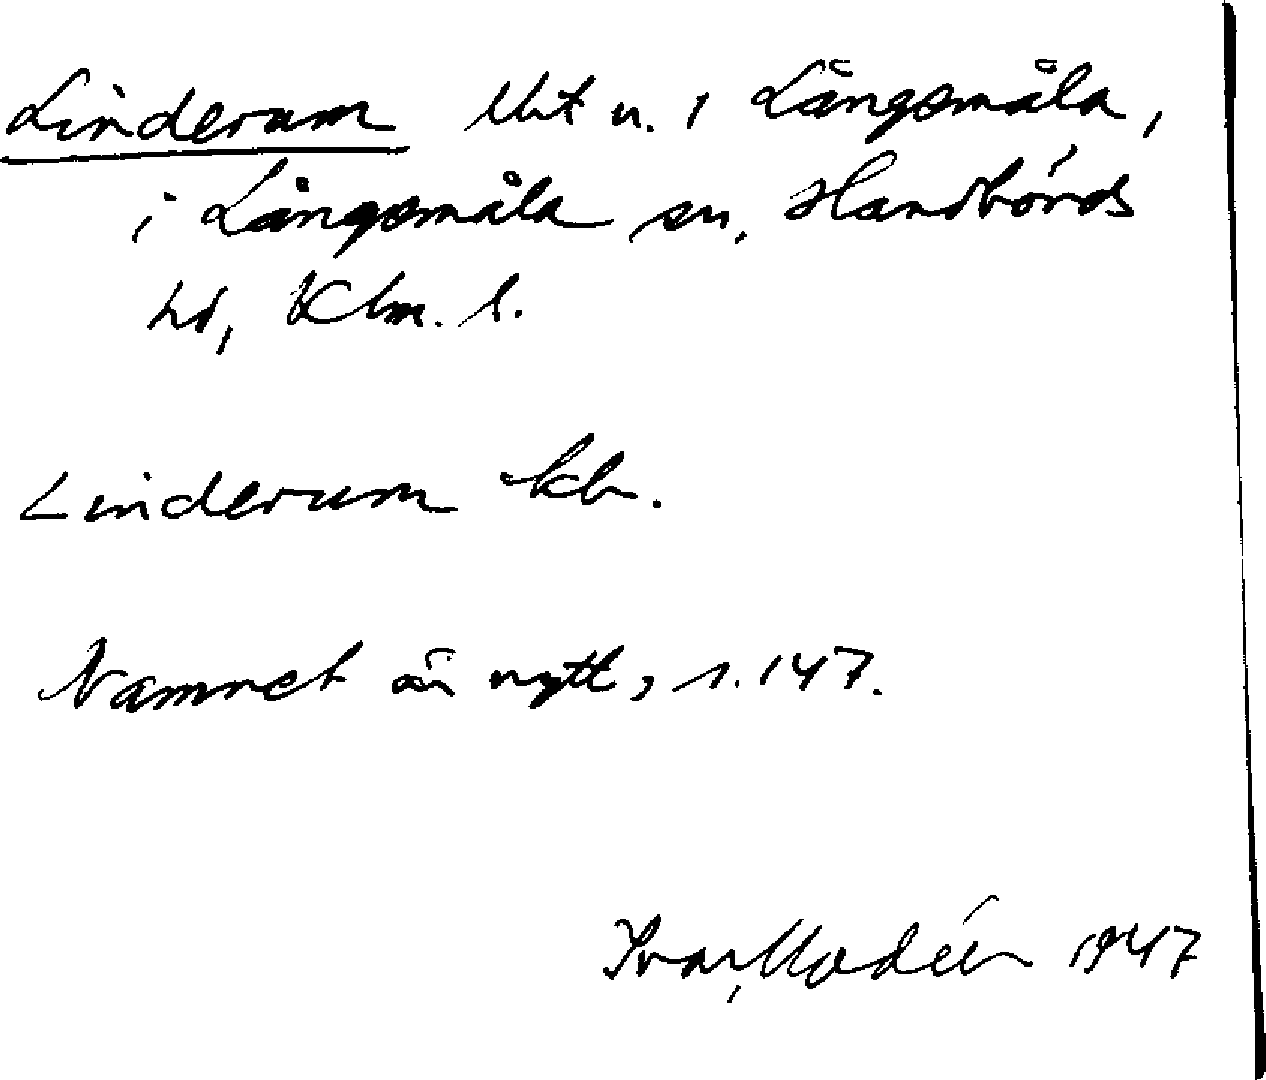 Linderum lht u. 1 Långsmåla,
i Långsmåla sn, Handbörds
hd, Klm. l.
Linderum kb.
Namnet är nytt, s. 147.
Ivar Modéer 1947